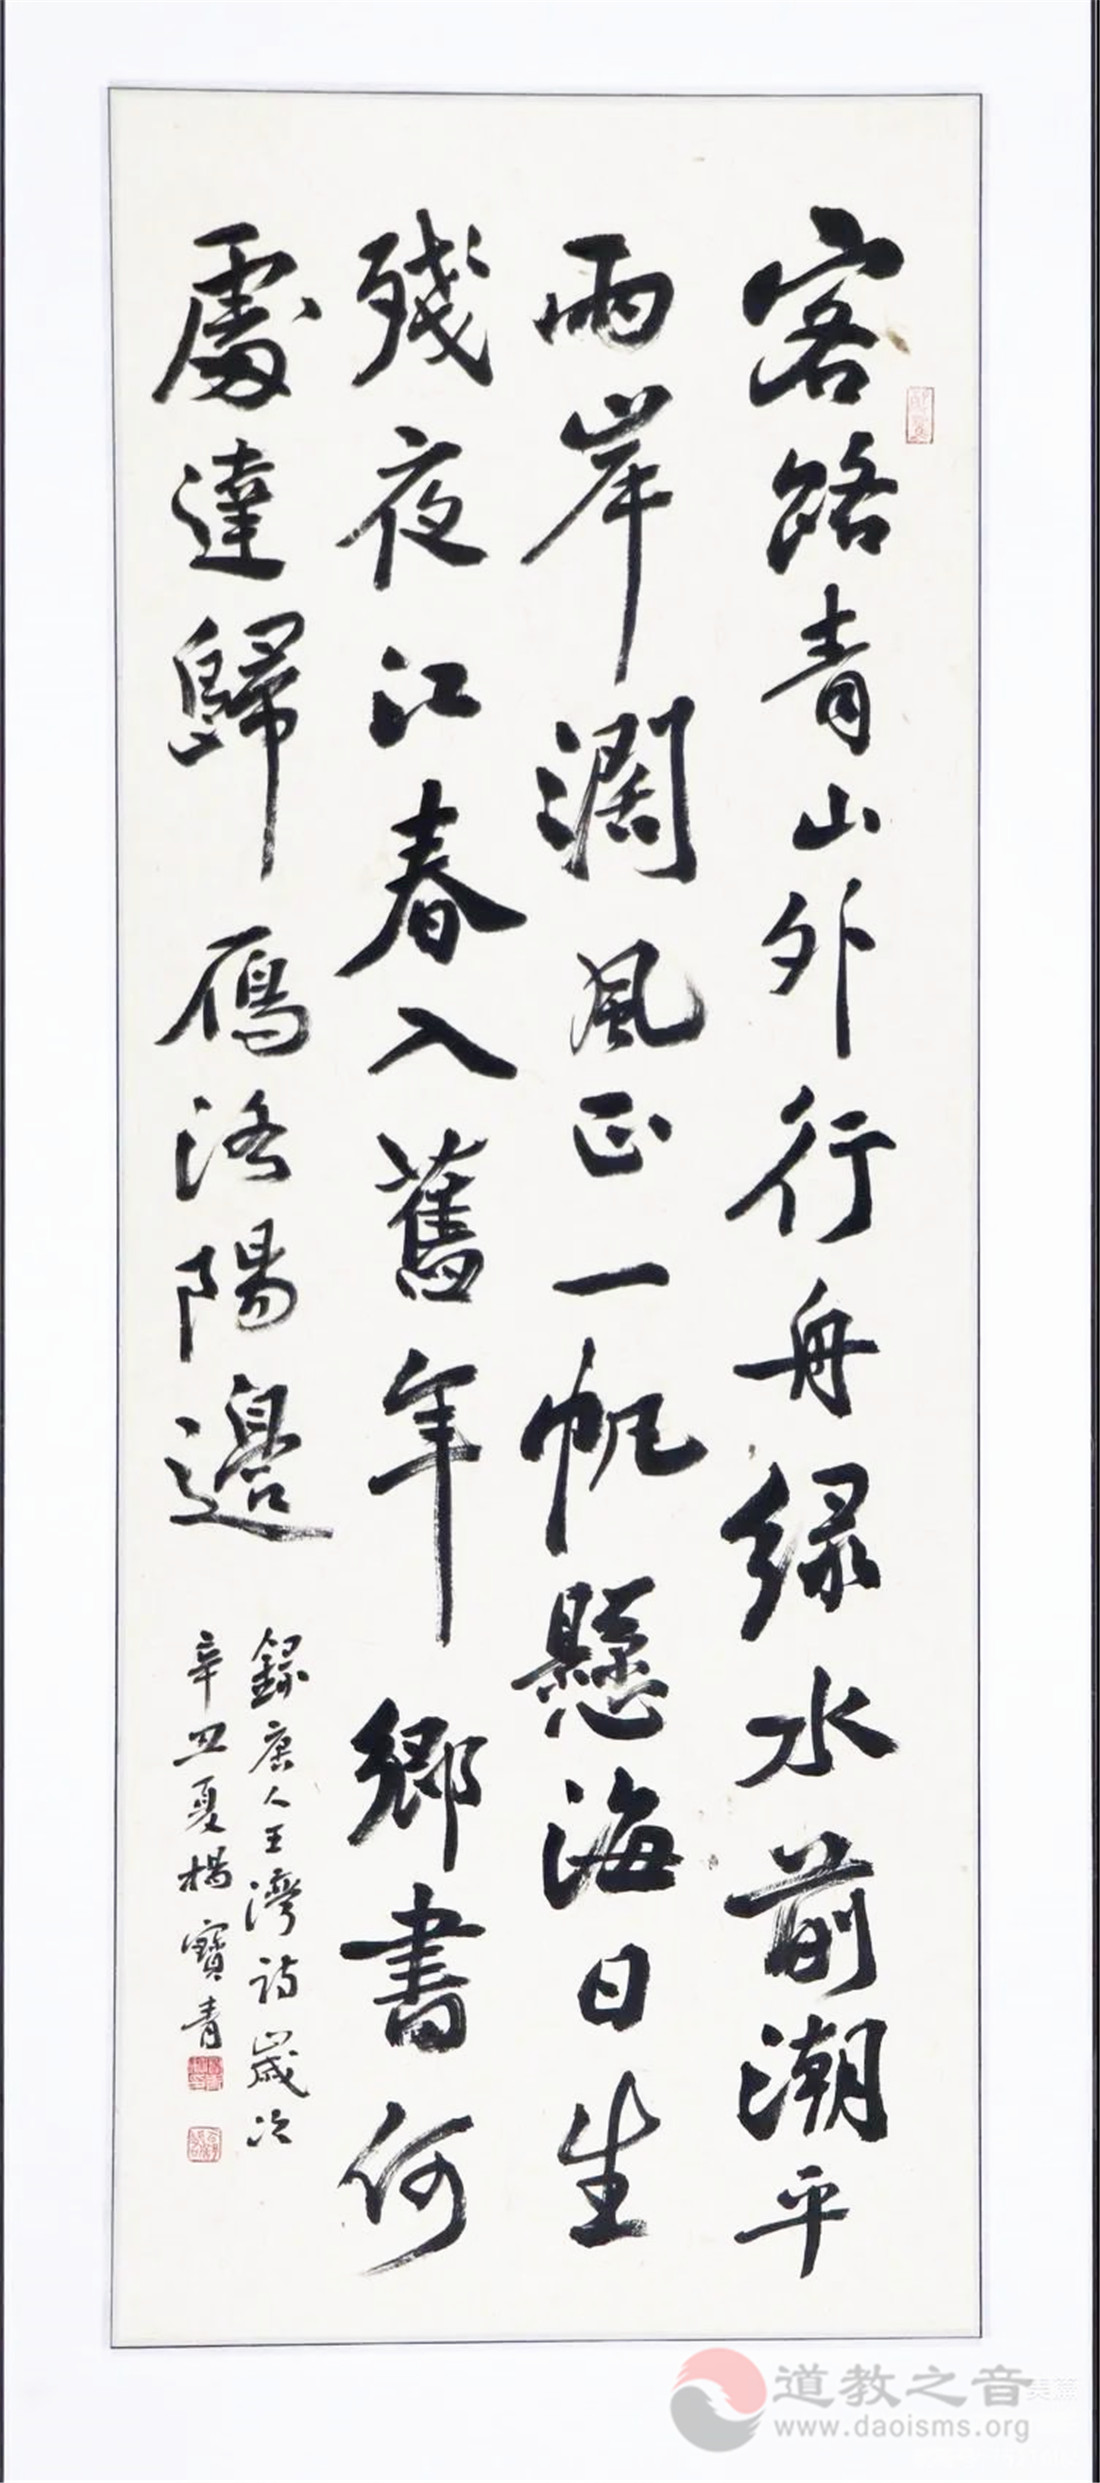 客路青山外行舟緑水前潮平
兩岸闊風正一帆懸海日生
殘夜江春入舊年鄉書何
處達歸鴈洛陽邊
錄唐人王灣詩歲次
辛丑夏楊寶青
道教之音
www.daoisms.org